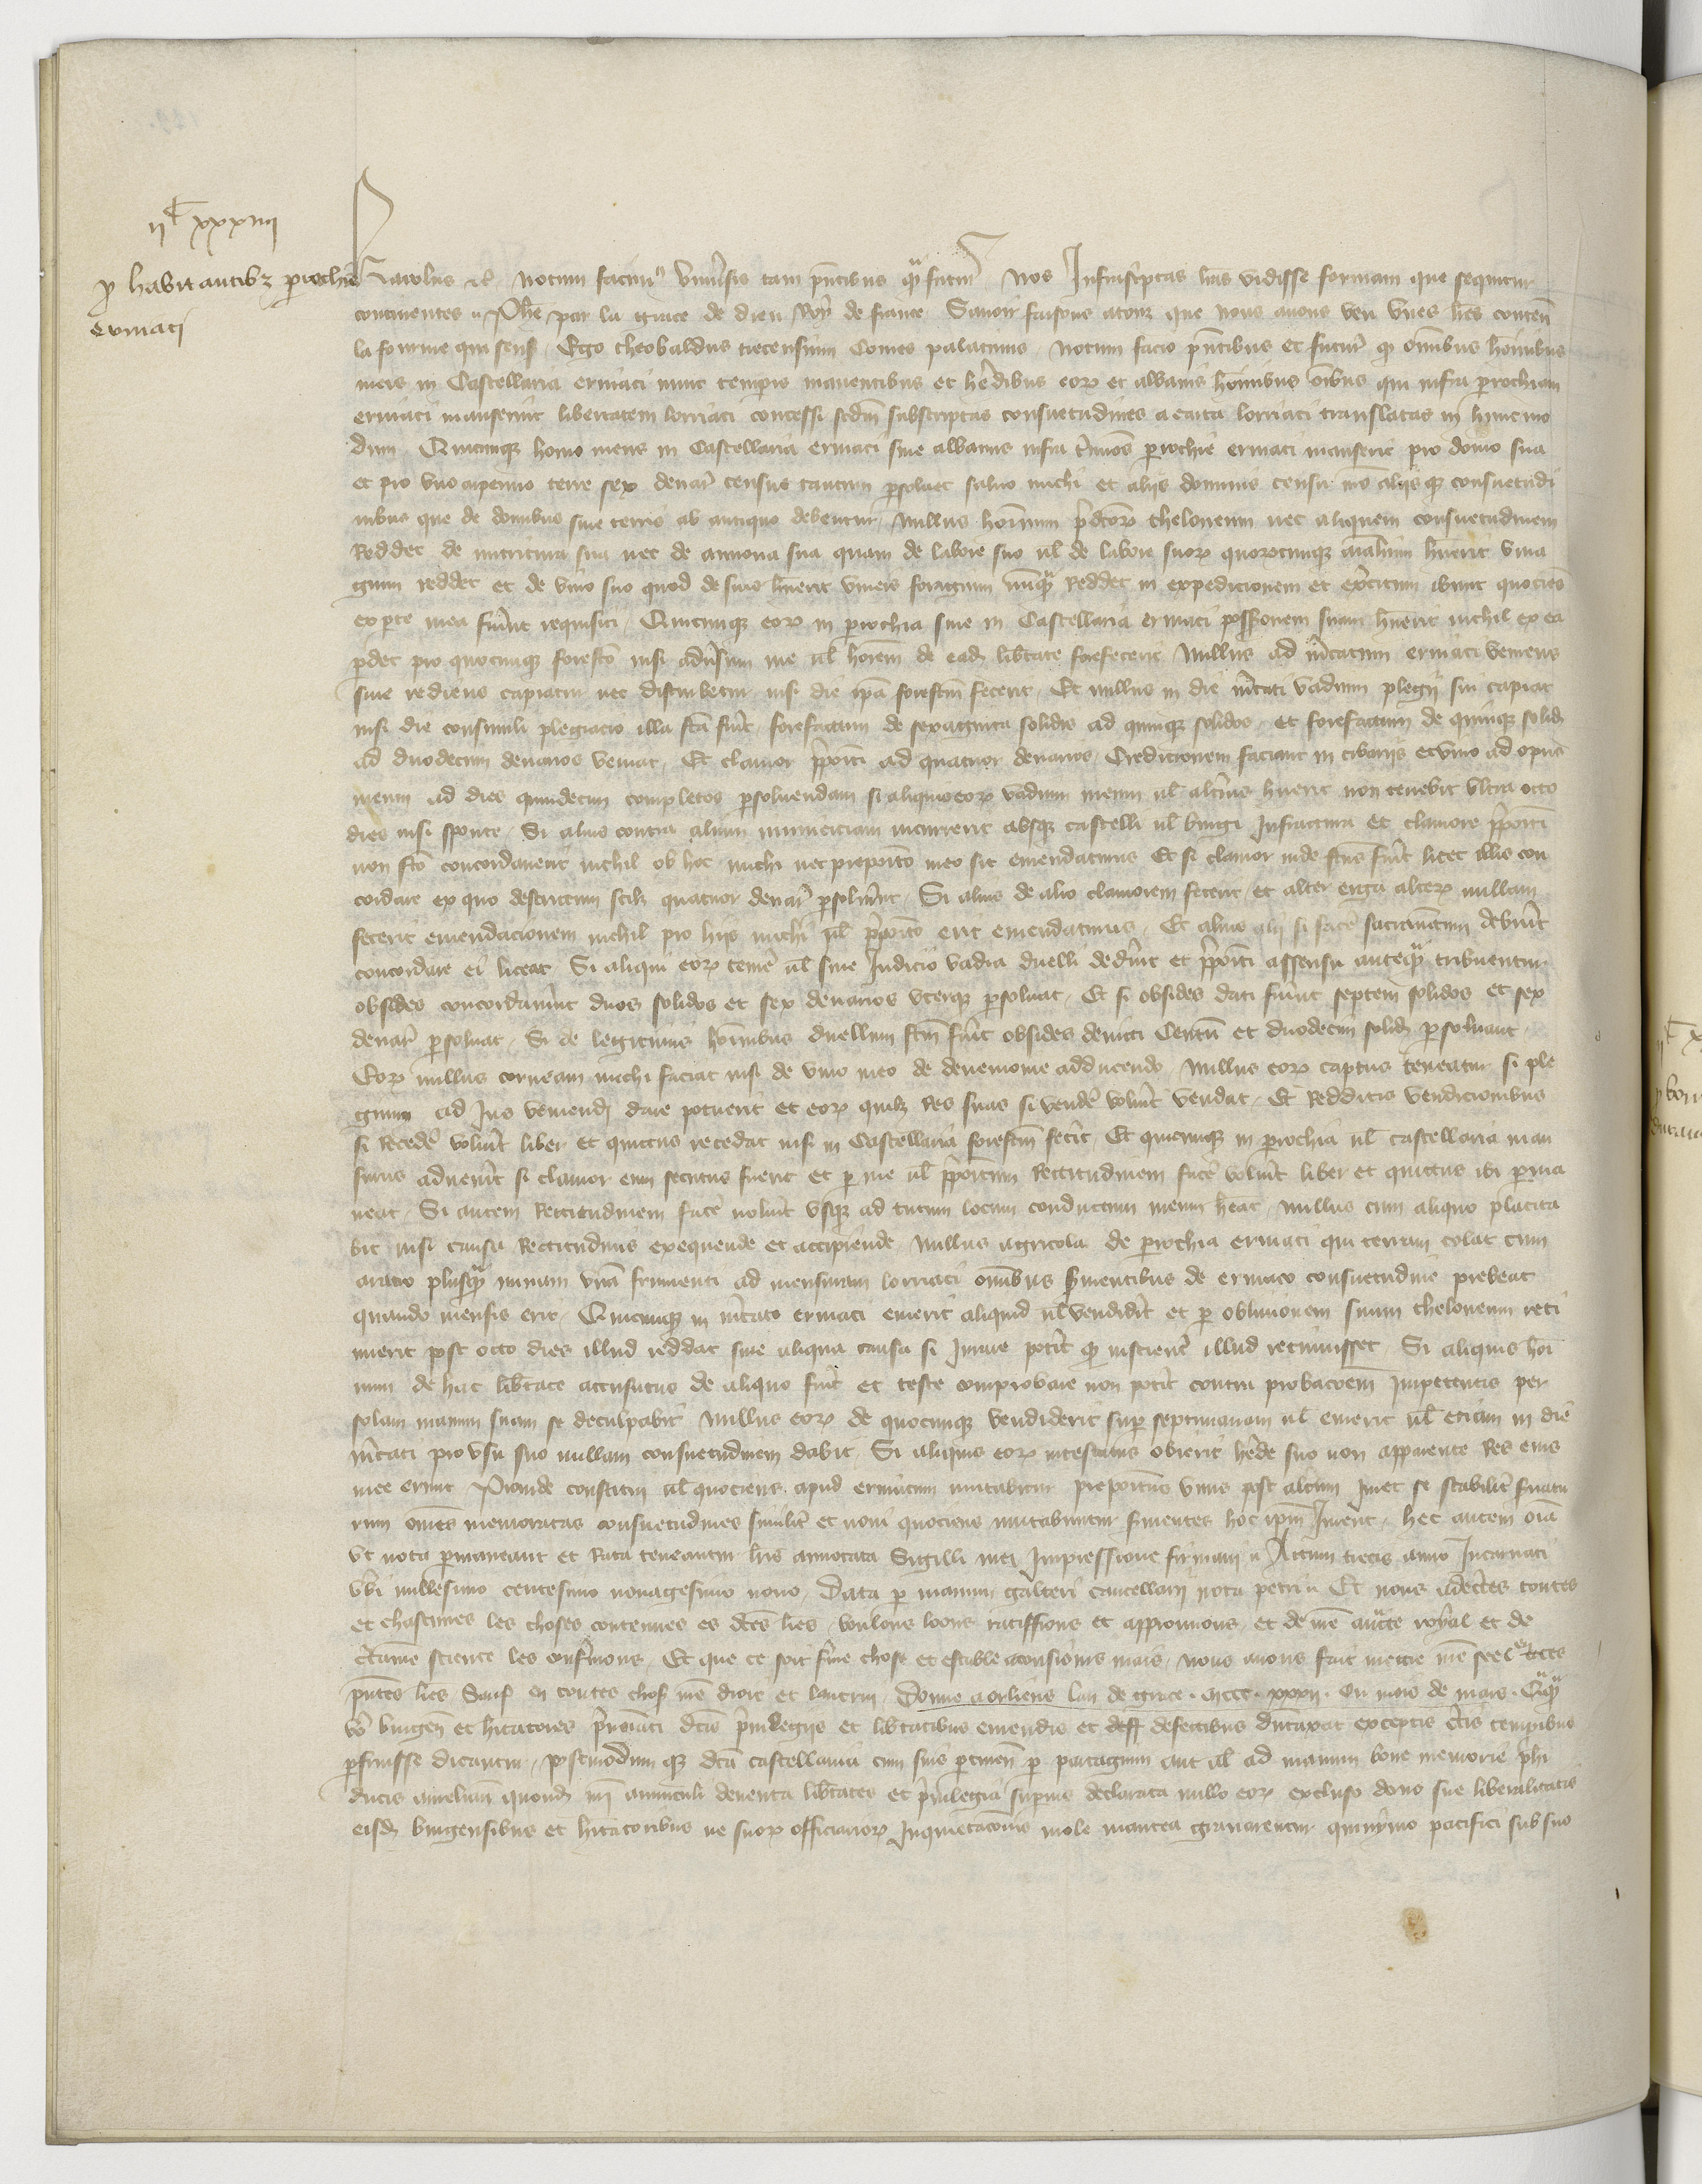 ijC xxxiiij
p habitantibz parochie
Ermaci
Karolus &c. Notum facim9 Vniusis tam pntibus qua futur Nos Infrascptas lras vidisse formam que sequitur
continentes Phe par la grace de dieu Roy de france Sauoir faisons a touz que nous auons veu vnes lres conten
la fourme qui sens. Ego theobaldus trecensium Comes palatinus Notum facio pntibus et futur q omibus hominibus
meis in Castellaria ermaci nunc tempis manentibus et hedibus eor et albanis hominibus oibus qui infra prochiam
ermaci manserint libertatem lorriaci concessi scdm subscriptas consuetudines a carta lorriaci translatas in hunc mo
dum Quicunqz homo meus in Castellaria ermaci siue albanus infra tminos prochie ermaci manserit pro domo sua
et pro vno arpenno terre sex denar census tantum psoluet saluo michi et aliis dominis censu aliisqz consuetudi
nibus que de domibus siue terris ab antiquo debentur Nullus hominum pdcor theloneum nec aliquem consuetudinem
Reddet de nutritura sua nec de annona sua quam de labore suo ul de labore suor quorcunqz aialium huerit vina
gium reddet et de vino suo quod de suis huerit vineis foragium nuqua Reddet in expedicionem et exercitum ibunt quociens
ex pte mea fuint requisiti Quicunqz eor in prochia siue in Castellaria ermaci possionem suam huerit nichil ex ea
pdet pro quocunqz forefco nisi aduersum me ul hoiem de ead libtate forefecerit Nullus ad mcatum ermaci veniens
siue rediens capiatur nec disturbetur nisi die ipa forefcm fecerit Et nullus in die mcati vadium plegii sui capiat
nisi die consimili plegiacio illa fca fuit forefactum de sexaginta solidis ad quinqz solidos et forefactum de quinqz solid
ad duodecim denarios veniat Et clamor ppositi ad quatuor denarios Credicionem faciant in cibariis et vino ad opus
meum ad dies quindecim completos psoluendam si aliquis eor vadium meum ul altius huerit non tenebit vltra octo
dies nisi sponte Si alius contra alium inimiciciam incurrerit absqz castelli ul burgi Infractura et clamore ppositi
non fco concordauerit nichil ob hoc michi nec preposito meo sit emendaturus Et si clamor inde fcus fuit licet illis con
cordare ex quo destrictum scilz quatuor denar psoluint Si alius de alio clamorem fecerit et alter erga alter nullam
fecerit emendacionem nichil pro hiis michi ul pposito erit emendaturus Et alius alii si face sacramtum debuit
concordare ei liceat Si aliqui eor teme ul siue Iudicio vadia duelli dedint et ppositi assensu anteqm tribuentur
obsides concordauint duos solidos et sex denarios vterqz psoluat Et si obsides dati fuint septem solidos et sex
denar psoluat Si de legitimis hominibus duellum fcm fuit obsides deuicti Centu et duodecim solid psoluant
Eor nullus corueam michi faciat nisi de vino meo de adducendo Nullus eor captus teneatur si ple
gium ad Ius veniend dare potuerit et eor quilz Res suas si vende voluit vendat Et Redditis vendicionibus
si Recede voluit liber et quittus recedat nisi in Castellaria forefcm fecit Et quicunqz in prochia ul castellaria man
surus aduenit si clamor eum secutus fuerit et p me ul ppositum Rectitudinem face voluit liber et quittus ibi pma
neat Si autem Rectitudinem face noluit vsqz ad tutum locum conductum meum heat Nullus cum aliquo placita
bit nisi causa Rectitudinis exequende et accipiende Nullus agricola de prochia ermaci qui terram colat cum
aratro plusqm minam vna frumenti ad mensuram lorriaci omibus suientibus de ermaco consuetudine prebeat
quando messis erit Quicunqz in mcato ermaci emerit aliquid ul vendidit et p obliuionem suum theloneum reti
nuerit post octo dies illud reddat sine aliqua causa si Iurare potit q inscient illud retinuisset Si aliquis hoi
num de hac libtate accusatus de aliquo fuit et teste comprobare non potit contra probacoem Impetentis per
solam manum suam se deculpabit Nullus eor de quocunqz vendiderit sup septimanam ul emerit ul etiam in die
mcati pro vsu suo nullam consuetudinem dabit Si aliquis eor intestatus obierit hede suo non apparente Res eius
mee erunt Proinde constitui ul quociens apud ermacum mutabitur prepositus vnus post alium Iuret se stabilit suatu
rum omes memoratas consuetudines similit et noui quociens mutabuntur suientes hoc ipm Iurent hec autem oia
vt nota pmaneant et Rata teneantur lris annotata Sigilli mei Impressione firmaui Actum trecis anno Incarnati
vbi millesimo centesimo nonagesimo nono Data p manum galteri cancellarii nota petri Et nous adectes toutes
et chascunes les choses contenues es dces lres voulons loons ratiffions et approuuons et de nre aucte royal et de
ctaine science les confmons Et que ce soit fme chose et estable a tousiours mais nous auons fait mettre nre seel a ces
pntes lres Sauf en toutes chos nre droit et lautrui Donne a orliens lan de grace mccc xxxii ou mois de mars Cuqm
vo burgen et hitatores pnoiati dcis priuilegiis et libtatibus emendis et deff defectibus dutaxat exceptis ctis tempibus
pfruisse dicantur postmodum qz dca castellaria cum suis ptinen p partagium aut al ad manum bone memorie phi
ducis aurelian quond nri auunculi deuenta libtates et priuilegia supius declarata nullo eor excluso dono sue liberalitatis
eisd burgensibus et hitatoribus ne suor officiarior Inquietacois mole inantea grauarentur quinymo pacifici sub suo